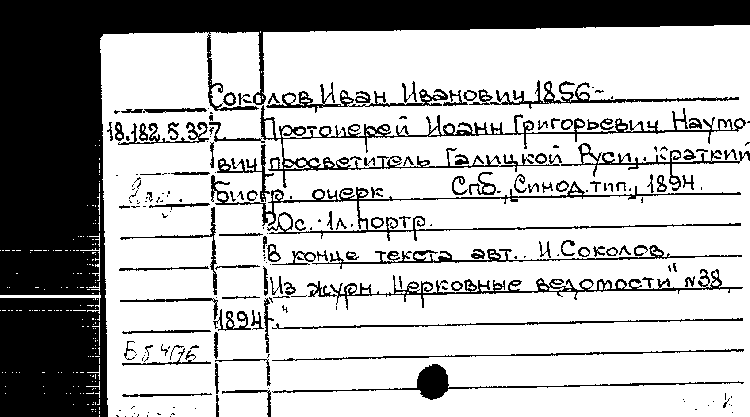 Соколов, Иван Иванович, 1856-.
18.182.5.327 Протоиерей Иоанн Григорьевич Наумо-
вич просветитель Галицкой Руси,. Краткий
биогр. очерк. Спб., Синод. тип., 1894.
2 экз.
20с.; 1л. портр.
В конце текста авт.. И. Соколов.
Из журн. „Церковные ведомости" №38
1894г."